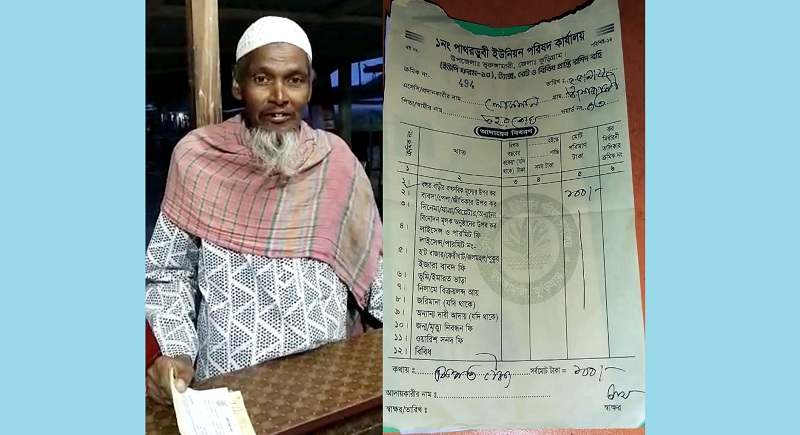 ১নং পাথরডুবী ইউনিয়ন পরিষদ কার্যালয়
উপজেলাঃ ভূরুঙ্গামারী, জেলাঃ কুড়িগ্রাম।
বই নং
পরিশিষ্ট-১৪
(ইউপি ফরম-১০), ট্যাক্স, রেট ও বিবিধ প্রাপ্তি রশিদ বহি
ক্রমিক নং- 494 তারিখ :
এসেসি/প্রদানকারীর নাম গ্রাম
পিতা/স্বামীর নাম ওয়ার্ড নং
আদায়ের বিবরণ
ক্রমিক নং
খাত
বিগত বছরের বকেয়া (যদি থাকে) টাকা
হইতে পর্যন্ত সময় টাকা
মোট পরিমাণ টাকা
কর নির্ধারনী তালিকার ক্রমিক নং
১ ২ ৩ ৪ ৫ ৬
১। বসত বাড়ীর বাৎসরিক মূল্যের উপর কর ১০০/-
২। ব্যবসা/পেশা/জীবিকার উপর কর
৩। সিনেমা/যাত্রা/থিয়েটার/অন্যান্য
বিনোদন মূলক অনুষ্ঠানের উপর কর
৪। লাইসেন্স ও পারমিট ফি
লাইসেন্স/পারমিট নং-
৫। হাট বাজার/ফেরীঘাট/জলমহল/পুকুর
ইজারা বাবদ ফি
৬। ভূমি/ইমারত ভাড়া
৭। নিলামে বিক্রয়লব্দ আয়
৮। জরিমানা (যদি থাকে)
৯। অন্যান্য দাবী আদায় (যদি থাকে)
১০। জন্ম/মৃত্যু নিবন্ধন ফি
১১। ওয়ারিশ সনদ ফি
১২। বিবিধ
কথায় : সর্বমোট টাকা = ১০০/-
আদায়কারীর নাম :
স্বাক্ষর/তারিখ : স্বাক্ষর